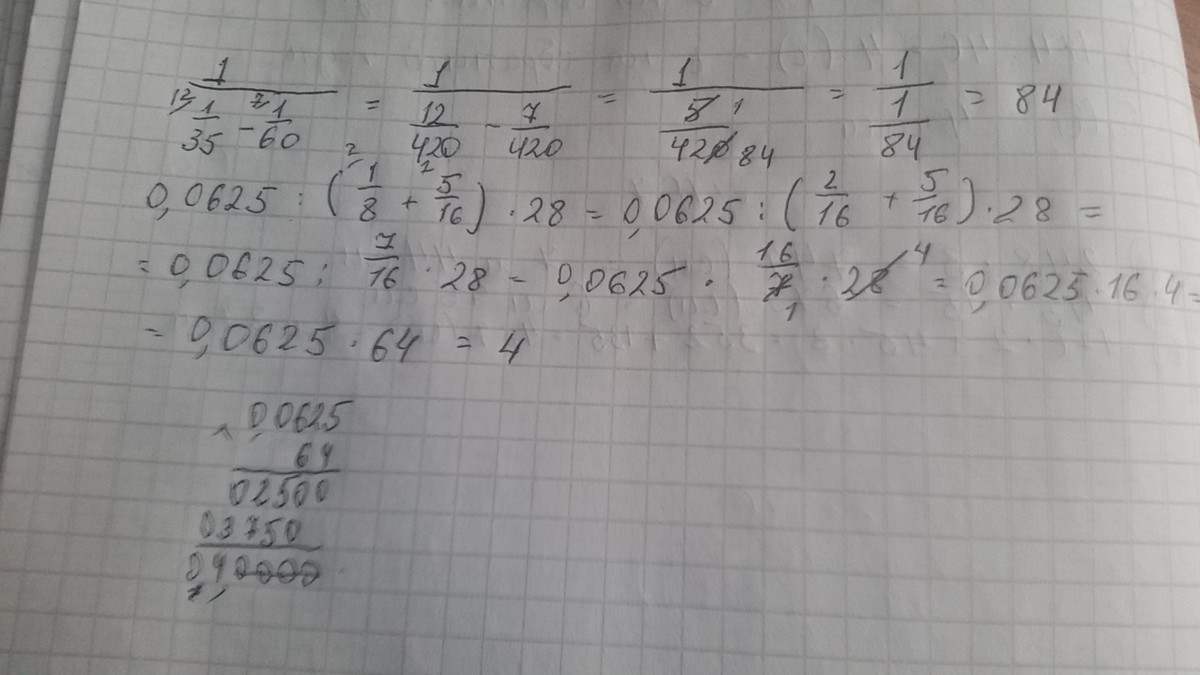 1/(¹²1/35 - ⁷1/60) = 1/(12/420 - 7/420) = 1/(5/420) 1 84 = 1/(1/84) = 84
0,0625 : (²1/8 + ²5/16) · 28 = 0,0625 : (2/16 + 5/16) · 28 =
= 0,0625 : 7/16 · 28 = 0,0625 · 16/7 1 · 28 4 = 0,0625 · 16 · 4 =
= 0,0625 · 64 = 4
× 0,0625
64
02500
03750
04,0000